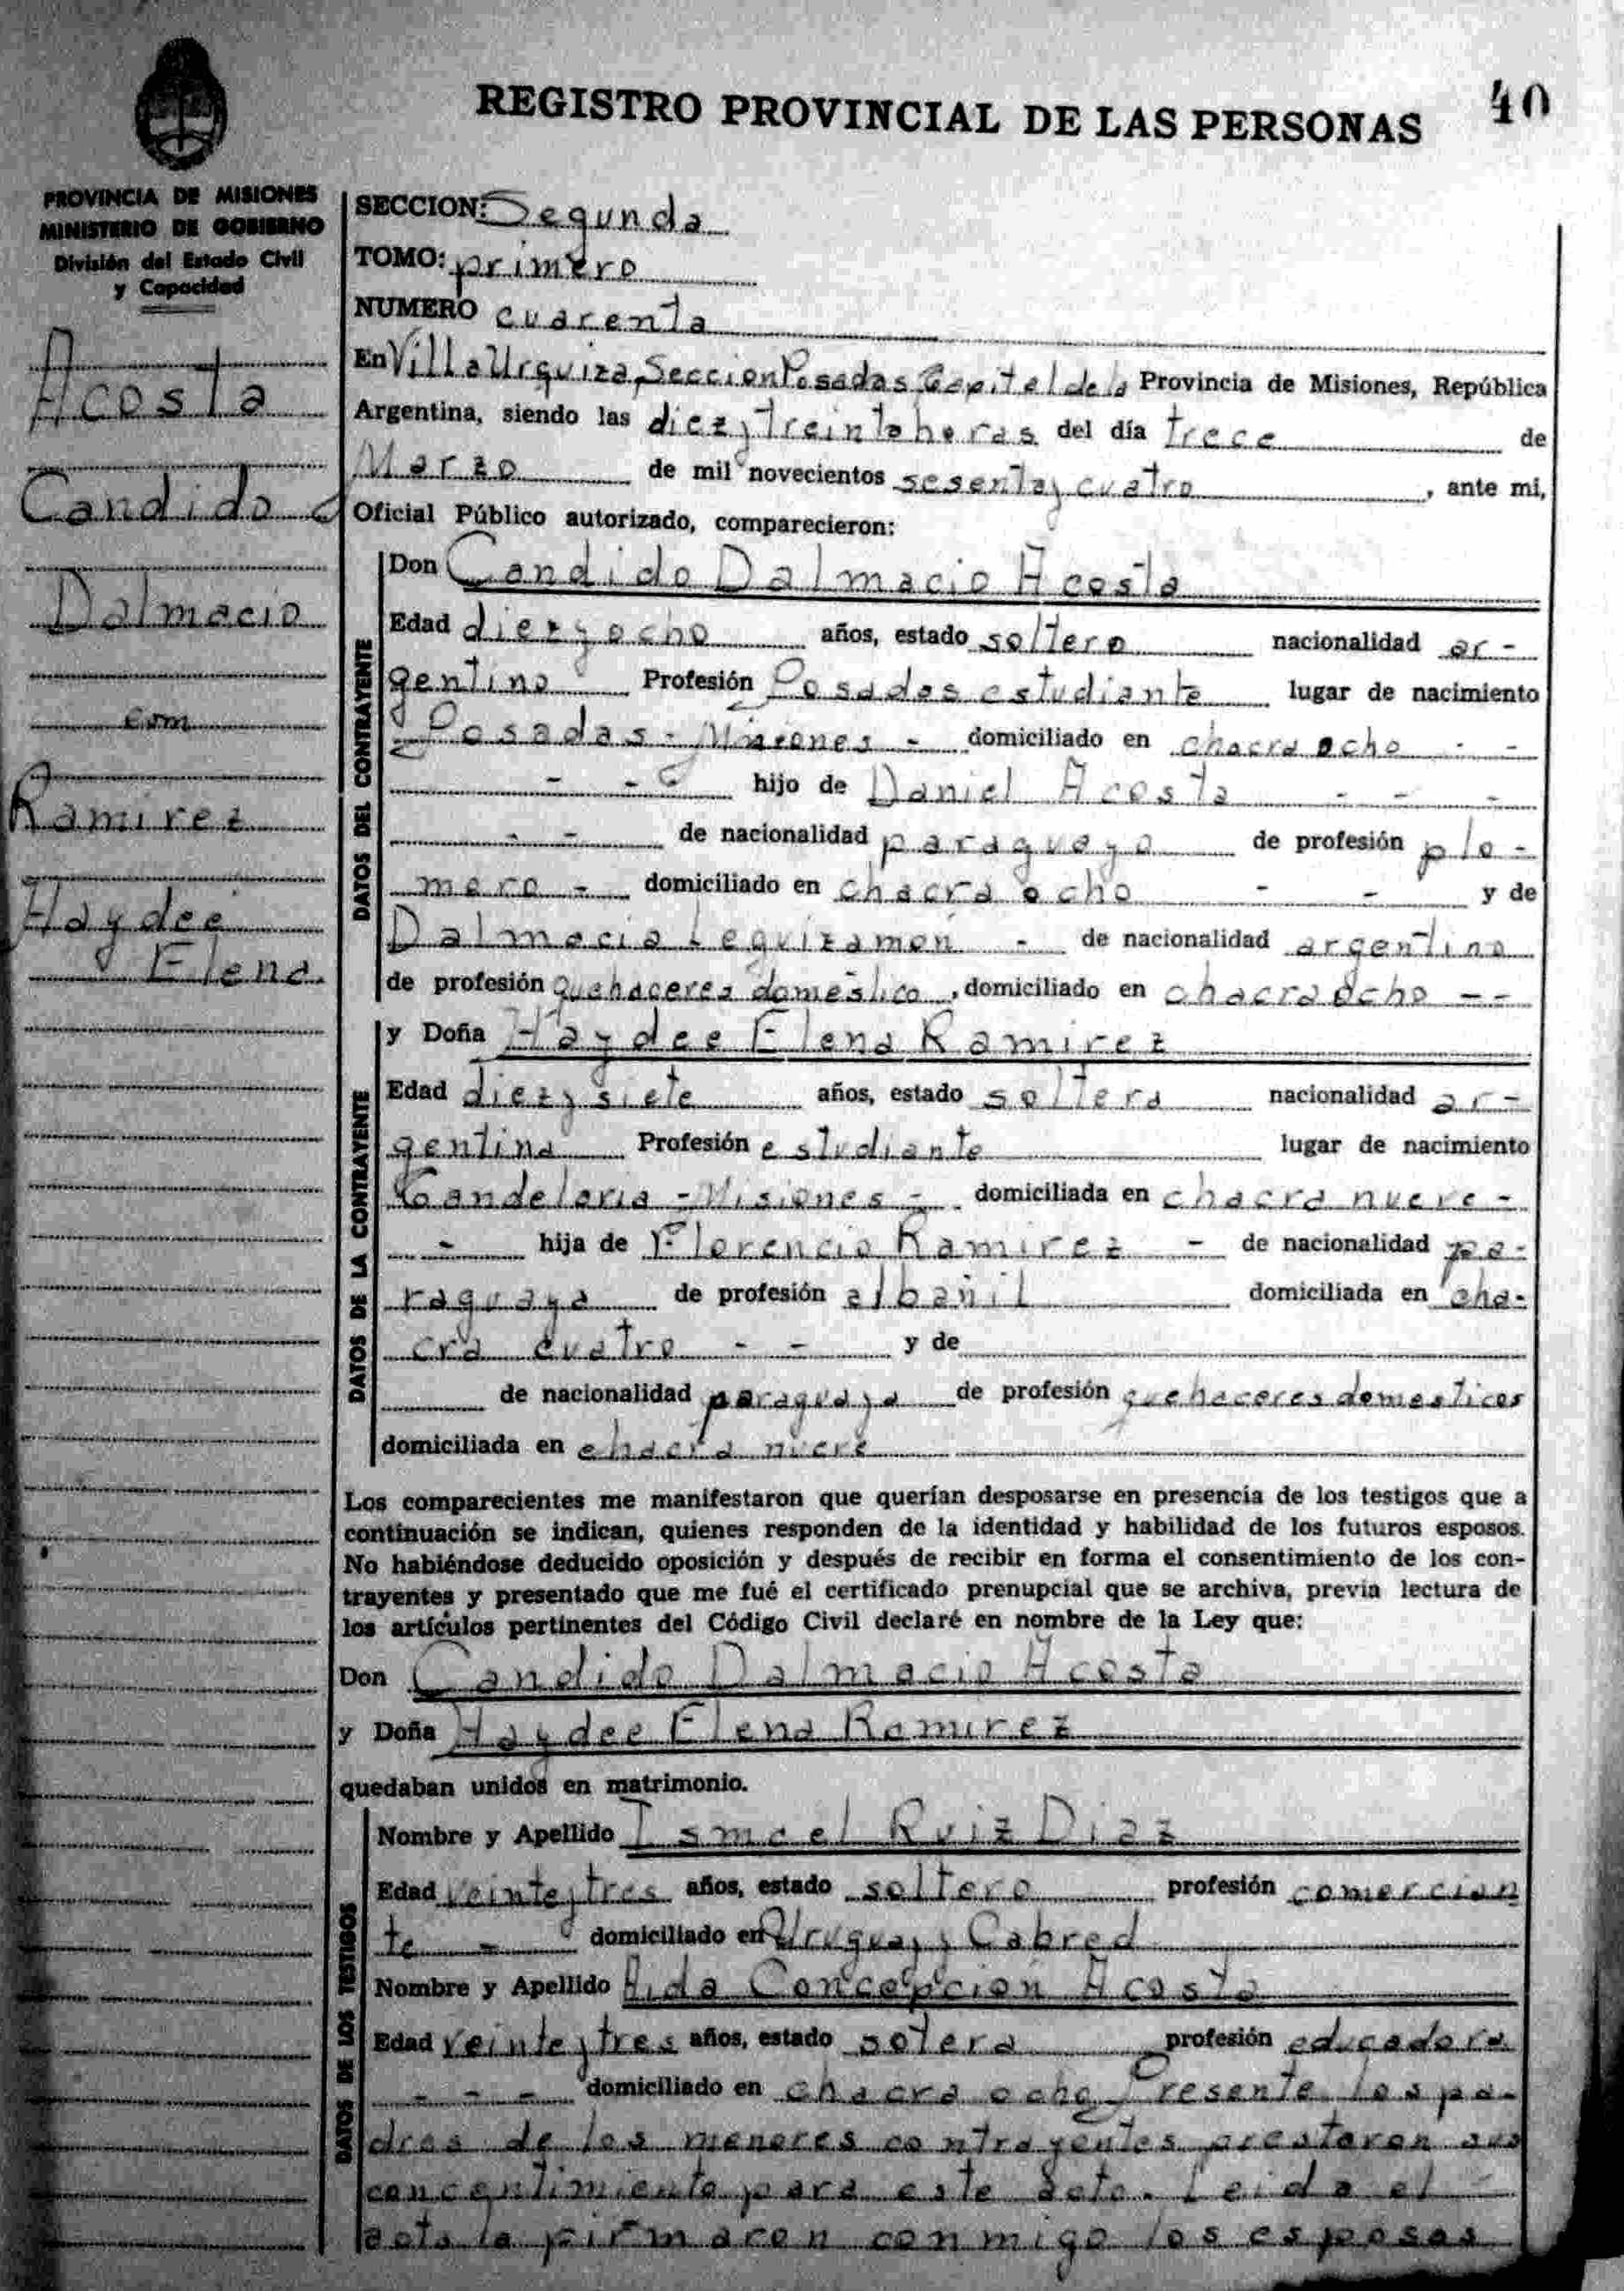 REGISTRO PROVINCIAL DE LAS PERSONAS 40
PROVINCIA DE MISIONES
MINISTERIO DE GOBIERNO
División del Estado Civil
y Capacidad
Acosta
Candido
Dalmacio
con
Ramirez
Haydee
Elena
SECCION: Segunda
TOMO: primero
NUMERO cuarenta
En Villa Urquiza, Seccion Posadas Capital de la Provincia de Misiones, República
Argentina, siendo las diez y treinta horas del día trece de
Marzo de mil novecientos sesenta y cuatro, ante mi,
Oficial Público autorizado, comparecieron:
DATOS DEL CONTRAYENTE
Don Candido Dalmacio Acosta
Edad diez y ocho años, estado soltero nacionalidad ar-
gentino Profesión Posadas estudiante lugar de nacimiento
Posadas - Misiones - domiciliado en chacra ocho - -
- - hijo de Daniel Acosta - - -
- - de nacionalidad paraguaya de profesión plo-
mero - domiciliado en chacra ocho - - y de
Dalmacia Leguizamon - de nacionalidad argentina
de profesión quehaceres domestico, domiciliado en chacra ocho - -
DATOS DE LA CONTRAYENTE
y Doña Haydee Elena Ramirez
Edad diez y siete años, estado soltera nacionalidad ar-
gentina Profesión estudiante lugar de nacimiento
Candelaria - Misiones - domiciliada en chacra nueve -
- hija de Florencio Ramirez - de nacionalidad pa-
raguaya de profesión albañil domiciliada en cha-
cra cuatro - - y de
de nacionalidad paraguaya de profesión quehaceres domesticos
domiciliada en chacra nueve
Los comparecientes me manifestaron que querían desposarse en presencia de los testigos que a
continuación se indican, quienes responden de la identidad y habilidad de los futuros esposos.
No habiéndose deducido oposición y después de recibir en forma el consentimiento de los con-
trayentes y presentado que me fué el certificado prenupcial que se archiva, previa lectura de
los artículos pertinentes del Código Civil declaré en nombre de la Ley que:
Don Candido Dalmacio Acosta
y Doña Haydee Elena Ramirez
quedaban unidos en matrimonio.
DATOS DE LOS TESTIGOS
Nombre y Apellido Ismael Ruiz Diaz
Edad veinte y tres años, estado soltero profesión comercian
te - domiciliado en Uruguay y Cabred
Nombre y Apellido Aida Concepcion Acosta
Edad veinte y tres años, estado sotera profesión educadora
- - - domiciliado en chacra ocho Presente los pa-
dres de los menores contrayentes prestaron sus
concentimiento para este acto. Leida el
acta la firmaron conmigo los esposos